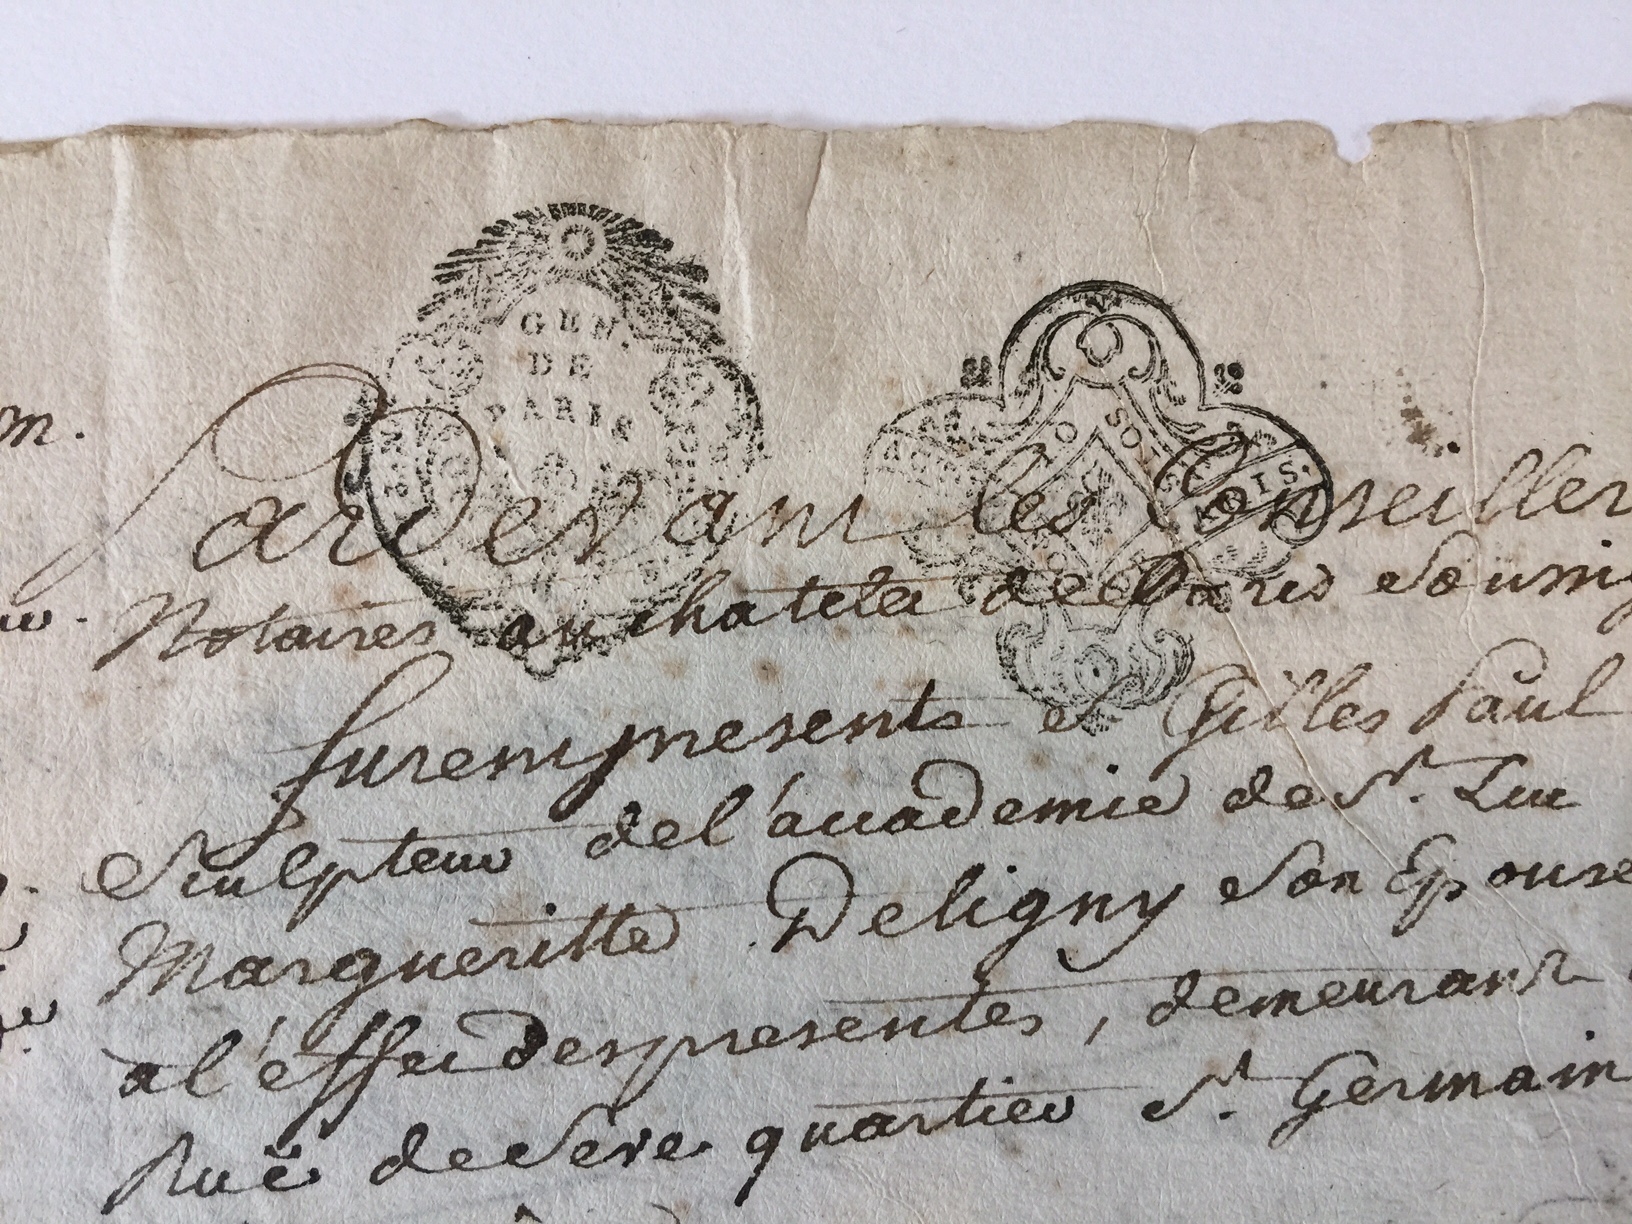 GEN.
DE
PARIS
SOLS
PARIS.
m.
Pardevant les Conseiller
Notaires au chatelet de Paris Soussig
furent presents et Gilles Paul
Sculpteur de l'accademie de St. Luc
Margueritte Deligny Son Epouse
a l'effet des presentes, demeurant
Ruë de Seve quartier St. Germain